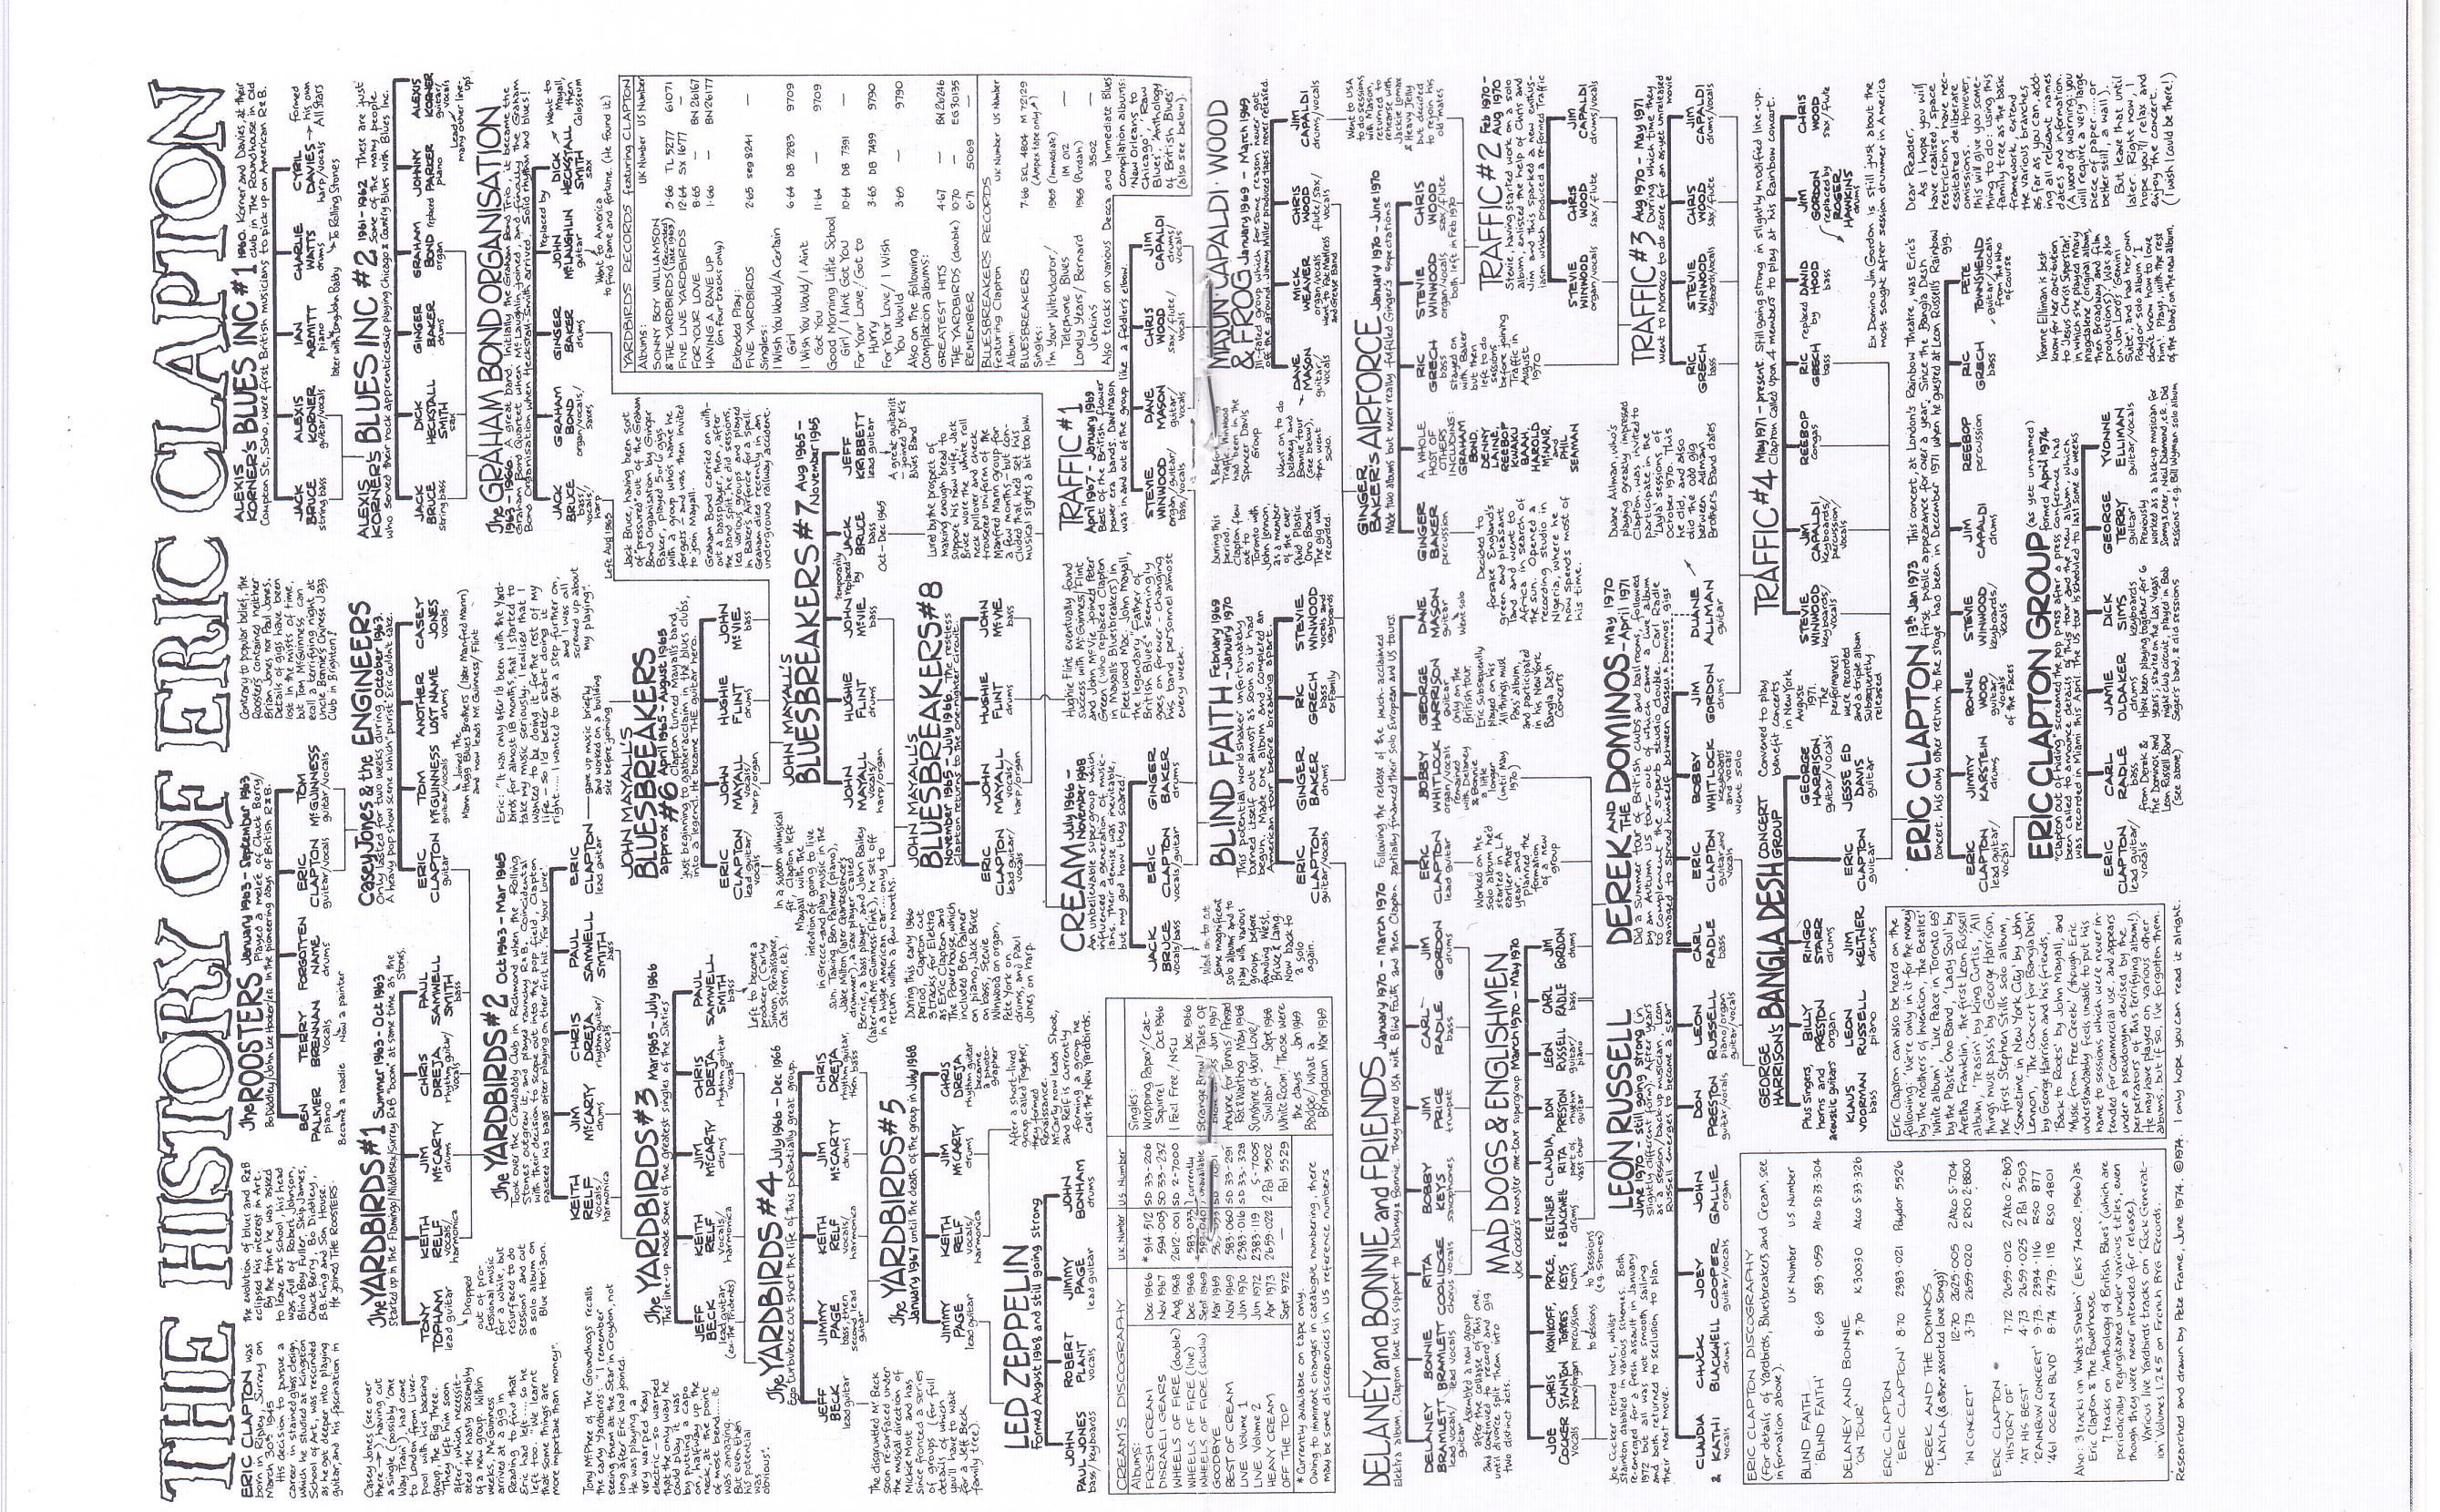 THE HISTORY OF ERIC CLAPTON
ERIC CLAPTON was
born in Ripley, Surrey on
March 30th 1945
His decision to pursue a
career in stained glass design,
which he studied at Kingston
School of Art, was rescinded
as he got deeper into playing
guitar, and his fascination in
the evolution of blues and R&B
eclipsed his interest in Art.
By the time he was asked
to leave art school, his head
was full of Robert Johnson,
Blind Boy Fuller, Skip James,
Chuck Berry, Bo Diddley,
B.B. King and Son House.
He joined THE ROOSTERS
The ROOSTERS January 1963 - September 1963
Played a melee of Chuck Berry/
Bo Diddley/John Lee Hooker/etc in the pioneering days of British R&B.
BEN PALMER piano
TERRY BRENNAN
FORGOTTEN NAME drums
ERIC CLAPTON guitar/vocals
TOM McGUINNESS guitar/vocals
Became a roadie
Now a painter
Contrary to popular belief, the
Roosters contained neither
Brian Jones nor Paul Jones.
Details of gigs have been
lost in the mists of time,
but Tom McGuinness can
recall a terrifying night at
Uncle Bonnie's Chinese Jazz
Club in Brighton!
ALEXIS KORNER'S BLUES INC #1
1960. Korner and Davies, at their
club in the Roundhouse in Old
Compton St, Soho, were first British musicians to pick up on American R&B.
JACK BRUCE string bass
ALEXIS KORNER guitar/vocals
IAN ARMITT piano
CHARLIE WATTS drums
CYRIL DAVIES harp/vocals
formed his own All Stars
later with Long John Baldry
To Rolling Stones
ALEXIS KORNER'S BLUES INC #2
1961-1962 These are just
some of the many people
who served their rock apprenticeship playing Chicago & Country Blues with Blues Inc.
JACK BRUCE string bass
DICK HECKSTALL SMITH sax
GINGER BAKER drums
GRAHAM BOND organ
replaced
JOHNNY PARKER piano
ALEXIS KORNER guitar/vocals
Lead many other line-ups
Casey Jones (see over
there) having cut
a single (possibly 'One
Way Train'), had come
to London from Liver-
pool with his backing
group, The Big Three.
They left him soon
after, which necessit-
ated the hasty assembly
of a new group. Within
weeks, McGuinness
arrived at a gig in
Reading to find that
Eric had left..... so he
left too. "We learnt
that some things are
more important than money".
The YARDBIRDS #1 Summer 1963 - Oct 1963
Started up in the Flamingo/Middlesex/Surrey R&B "boom" at same time as the Stones.
TONY TOPHAM lead guitar
KEITH RELF vocals/harmonica
JIM McCARTY drums
CHRIS DREJA rhythm guitar/vocals
PAUL SAMWELL SMITH bass
Dropped
out of pro-
fessional music
for a while, but
resurfaced to do
sessions and cut
a solo album on
Blue Horizon.
Casey Jones & the ENGINEERS
Only lasted for two weeks during October 1963
A heavy pop show scene which 'purist' Eric couldn't take.
ERIC CLAPTON guitar
TOM McGUINNESS guitar/vocals
ANOTHER LOST NAME drums
CASEY JONES vocals
Joined The
Mann Hugg Blues Brothers (later Manfred Mann)
and now leads McGuinness/Flint
The GRAHAM BOND ORGANISATION
1963-1966 A great band. Initially the Graham Bond Trio, it became the
Graham Bond Quartet when McLaughlin joined and finally The Graham
Bond Organisation when Heckstall-Smith arrived. Solid rhythm and blues!
JACK BRUCE bass/vocals/harp
GRAHAM BOND organ/vocals/saxes
GINGER BAKER drums
JOHN McLAUGHLIN guitar
replaced by
DICK HECKSTALL SMITH sax
Went to Mayall, then Colosseum
Went to America
to find fame and fortune. (He found it)
Left Aug 1965
The YARDBIRDS #2 Oct 1963 - Mar 1965
Took over the Crawdaddy Club in Richmond when the Rolling
Stones outgrew it, and played raunchy R&B. Coincidental
with their decision to scope out into the pop field, Clapton
packed his bags after playing on their first hit 'For Your Love'
KEITH RELF vocals/harmonica
JIM McCARTY drums
CHRIS DREJA rhythm guitar/vocals
PAUL SAMWELL SMITH bass
ERIC CLAPTON lead guitar
Eric: "It was only after I'd been with the Yard-
birds for almost 18 months, that I started to
take my music seriously. I realised that I
wanted to be doing it for the rest of my
life - so I'd better start doing it
right..... I wanted to get a step further on,
and I was all
screwed up about
my playing".
gave up music briefly
and worked on a building
site before joining
Tony McPhee of The Groundhogs recalls
the early Yardbirds: "I remember
seeing them at the Star in Croydon, not
long after Eric had joined.
He was playing a
very warped Kay
electric - so warped
that the only way he
could play it was
by putting a capo
on, halfway up the
neck, at the point
of most bend..... it
was amazing.
But even then
his potential
was
obvious".
The YARDBIRDS #3 Mar 1965 - July 1966
This line-up made some of the greatest singles of the Sixties
JEFF BECK lead guitar (ex The Tridents)
KEITH RELF vocals/harmonica
JIM McCARTY drums
CHRIS DREJA rhythm guitar/vocals
PAUL SAMWELL SMITH bass
Left to become a
producer (Carly
Simon, Renaissance,
Cat Stevens, etc).
The YARDBIRDS #4 July 1966 - Dec 1966
Ego turbulence cut short the life of this potentially great group.
JEFF BECK lead guitar
JIMMY PAGE bass, then second lead
KEITH RELF vocals/harmonica
JIM McCARTY drums
CHRIS DREJA rhythm guitar, then bass
The disgruntled Mr Beck
soon re-surfaced under
the musical direction of
Mickie Most and has
since fronted a series
of groups (for full
details of which
you'll have to wait
for a Jeff Beck
family tree).
The YARDBIRDS #5
January 1967 until the death of the group in July 1968
JIMMY PAGE lead guitar
KEITH RELF vocals/harmonica
JIM McCARTY drums
CHRIS DREJA rhythm guitar
became a photo-grapher
After a short-lived
group called Together,
they formed
Renaissance.
McCarty leads Shoot,
and Relf is currently
forming a group he
calls the New Yardbirds.
LED ZEPPELIN
formed August 1968 and still going strong
JOHN PAUL JONES bass/keyboards
ROBERT PLANT vocals
JIMMY PAGE lead guitar
JOHN BONHAM drums
JOHN MAYALL'S BLUESBREAKERS approx #6 April 1965 - August 1965
Clapton turned Mayall's band,
just beginning to gather acclaim in the blues clubs,
into a legend. He became THE guitar hero.
ERIC CLAPTON lead guitar/vocals
JOHN MAYALL vocals/harp/organ
HUGHIE FLINT drums
JOHN McVIE bass
In a sudden whimsical
fit, Clapton left
Mayall with the
intention of going to live
in Greece and play music in the
sun. Taking Ben Palmer (piano),
Jake Milton (later Quintessence's
drummer), a sax player called
Bernie, a bass player, and John Bailey
(later with McGuinness Flint), he set off
in a huge American car.....only to
return within a few months.
JOHN MAYALL'S BLUESBREAKERS #7 Aug 1965 - November 1965
JOHN MAYALL vocals/harp/organ
HUGHIE FLINT drums
JOHN McVIE bass
temporarily replaced by
JACK BRUCE bass Oct - Dec 1965
JEFF KRIBBETT lead guitar
A great guitarist
- joined Dr K's
Blues Band
Jack Bruce, having been sort
of "pressured" out of the Graham
Bond Organisation by Ginger
Baker, played 5 or 6 gigs
with a group whose name he
forgets and was then invited
to join Mayall.
Graham Bond carried on with-
out a bass player then, after
the band split, he did sessions,
led various groups and played
in Baker's Airforce for a spell.
Graham died recently in a London
underground railway accident.
JOHN MAYALL'S BLUESBREAKERS #8
November 1965 - July 1966. The restless
Clapton returns to the one-nighter circuit.
ERIC CLAPTON lead guitar/vocals
JOHN MAYALL vocals/harp/organ
HUGHIE FLINT drums
JOHN McVIE bass
Lured by the prospect of
making enough bread to
support his new wife, Jack
Bruce wore the white roll
neck pullover and check
trousered uniform of the
Manfred Mann group for
a few months - but con-
cluded that he'd set his
musical sights a bit too low.
During this early 1966
period, Clapton cut
3 tracks for Elektra
as Eric Clapton and
The Powerhouse, which
included Ben Palmer
on piano, Jack Bruce
on bass, Stevie
Winwood on organ,
Pete York on
drums, and Paul
Jones on harp.
Hughie Flint eventually found
success with McGuinness/Flint
and John McVie joined Peter
Green (who replaced Clapton
in Mayall's Bluesbreakers) in
Fleetwood Mac. John Mayall,
the legendary "Father of
British Blues" seemingly
goes on forever - changing
his band personnel almost
every week.
YARDBIRDS RECORDS featuring CLAPTON
UK Number US Number
Albums:
SONNY BOY WILLIAMSON
& THE YARDBIRDS (Recorded Dec 1963) 5·66 TL 5277 61071
FIVE LIVE YARDBIRDS 12·64 SX 1677 —
FOR YOUR LOVE 8·65 — BN 26167
HAVING A RAVE UP 1·66 — BN 26177
(on four tracks only)
Extended Play:
FIVE YARDBIRDS 2·65 seg 8241 —
Singles:
I Wish You Would/A Certain
Girl 6·64 DB 7283 9709
I Wish You Would/I Ain't
Got You 11·64 — 9709
Good Morning Little School
Girl/I Ain't Got You 10·64 DB 7391 —
For Your Love/Got to
Hurry 3·65 DB 7499 9790
For Your Love/I Wish
You Would 3·65 — 9790
Also on the following
compilation albums:
GREATEST HITS 4·67 BN 26246
THE YARDBIRDS (double) 6·70 EG 30135
REMEMBER 6·71 5069
BLUESBREAKERS RECORDS
featuring Clapton UK Number US Number
Album:
BLUESBREAKERS 7·66 SKL 4804 M 72129
(Ampex tape only)
Singles:
I'm Your Witchdoctor/
Telephone Blues 1965 (Immediate) IM 012 —
Lonely Years/Bernard
Jenkins 1966 (Purdah) 3502 —
Also tracks on various Decca and Immediate Blues
compilation albums:
'New Orleans to
Chicago', 'Raw
Blues', 'Anthology
of British Blues'
(also see below).
CREAM July 1966 - November 1968
An unbelievable supergroup which
influenced a generation of music-
ians. Their demise was inevitable,
but my god how they soared!
JACK BRUCE vocals/bass
ERIC CLAPTON vocals/guitar
GINGER BAKER drums
Went on to cut
some magnificent
solo albums and to
play with various
groups before
founding West,
Bruce & Laing.
Now back to
a solo
again.
TRAFFIC #1
April 1967 - January 1969
Best of the British flower
power era bands. Dave Mason
was in and out of the group like a fiddler's elbow.
STEVIE WINWOOD organ/guitar/bass/vocals
DAVE MASON guitar/vocals
CHRIS WOOD sax/flute/vocals
JIM CAPALDI drums/vocals
Before
Traffic, Winwood
had been in the
Spencer Davis
Group
CREAM'S DISCOGRAPHY UK Number US Number
Albums:
FRESH CREAM Dec 1966 *594·512 SD 33-206
DISRAELI GEARS Nov 1967 594·003 SD 33-232
WHEELS OF FIRE (double) Aug 1968 2612·001 SD 2-7000
WHEELS OF FIRE (live) Dec 1968
WHEELS OF FIRE (studio) Sept 1969
currently unavailable
GOODBYE Mar 1969
BEST OF CREAM Nov 1969 583·060 SD 33-291
LIVE Volume 1 Jun 1970 2383·016 SD 33-328
LIVE Volume 2 Jun 1972 2383·119 S-7005
HEAVY CREAM Apr 1973 2659·022 2 Pol 3502
OFF THE TOP Sept 1972 — Pol 5529
Singles:
Wrapping Paper/Cat-
Squirrel Oct 1966
I Feel Free/NSU Dec 1966
Strange Brew/Tales of Jun 1967
Anyone for Tennis/Pressed
Rat & Warthog May 1968
Sunshine of Your Love/
Swlabr Sept 1968
White Room/Those were
the days Jan 1969
Badge/What a
Bringdown Mar 1969
*Currently available on tape only.
Owing to imminent changes in catalogue numbering, there
may be some discrepencies in US reference numbers
BLIND FAITH February 1969 - January 1970
This potential worldshaker unfortunately
burned itself out almost as soon as it had
begun. Made one album and completed an
American tour before breaking apart.
ERIC CLAPTON guitar/vocals
GINGER BAKER drums
RIC GRECH bass
ex Family
STEVIE WINWOOD vocals and keyboards
During this
period,
Clapton flew
out to
Toronto with
John Lennon,
as a member
of the ever
fluid Plastic
Ono Band.
The gig was
recorded.
MASON·CAPALDI·WOOD & FROG January 1969 - March 1969
Ill-fated group which for some reason never got
off the ground. Jimmy Miller produced tapes never released.
DAVE MASON guitar/vocals
MICK WEAVER organ/vocals
Went to Fat Mattress and Grease Band
CHRIS WOOD flute/sax/vocals
JIM CAPALDI drums/vocals
Went on to do
Delaney and
Bonnie tour
(see below),
then went
solo.
Went to USA
to do sessions
with Mason,
returned to
rehearse with
Jackie Lomax
& Heavy Jelly
but decided
to rejoin his
old mates
DELANEY and BONNIE and FRIENDS January 1970 - March 1970
Following the release of the much-acclaimed
Elektra album, Clapton lent his support to Delaney & Bonnie. They toured USA with Blind Faith, and then Clapton partially financed their solo European and US tours.
DELANEY BRAMLETT lead vocals/guitar
BONNIE BRAMLETT lead vocals
RITA COOLIDGE chorus vocals
BOBBY KEYS saxophones
JIM PRICE trumpet
CARL RADLE bass
JIM GORDON drums
ERIC CLAPTON guitar/vocals
BOBBY WHITLOCK organ/vocals
GEORGE HARRISON guitar
DAVE MASON guitar
Went solo
Assembled a new group
after the collapse of this one,
and continued to record and gig
until divorce split them into
two distinct acts.
Worked on the
solo album he'd
started in LA
earlier that
year, and
planned the
formation
of a new
group
remained
with Delaney
& Bonnie
a little
longer
(until May
1970)
Only on the
British tour.
Eric subsequently
played on his
'All things must
Pass' album,
and participated
in his New York
Bangla Desh
Concerts
GINGER BAKER'S AIRFORCE January 1970 - June 1970
Made two albums but never really fulfilled Ginger's expectations
GINGER BAKER percussion
A WHOLE HOST OF OTHERS INCLUDING: GRAHAM BOND, DENNY LAINE, REEBOP KWAKU BAAH, HAROLD McNAIR, AND PHIL SEAMAN
RIC GRECH bass
STEVIE WINWOOD organ/vocals
CHRIS WOOD sax/flute
both left in Feb 1970
Stayed on
with Baker
but then
left to do
sessions
before joining
Traffic in
August
1970
Decided to
forsake England's
green and pleasant
land and went to
Africa in search of
the sun. Opened a
recording studio in
Nigeria, where he
now spends most of
his time.
TRAFFIC #2 Feb 1970 - Aug 1970
Stevie, having started work on a solo
album, enlisted the help of Chris and
Jim and this sparked a new enthus-
iasm which produced a re-formed Traffic
STEVIE WINWOOD organ/vocals
CHRIS WOOD sax/flute
JIM CAPALDI drums/vocals
MAD DOGS & ENGLISHMEN
Joe Cocker's monster one-tour supergroup March 1970 - May 1970
JOE COCKER vocals
CHRIS STAINTON piano/organ
KONIKOFF, TORRES percussion
PRICE, KEYS horns
KELTNER & BLACKWELL drums
CLAUDIA, RITA part of vast choir
DON PRESTON rhythm guitar
LEON RUSSELL guitar/piano
CARL RADLE bass
JIM GORDON drums
to sessions
(e.g. Stones)
Joe Cocker retired hurt, whilst
Stainton dabbled in various schemes. Both
re-emerged for a fresh assault in January
1972 but all was not smooth sailing
and both returned to seclusion to plan
their next move.
LEON RUSSELL
June 1970 - still going strong (in
slightly different form). After years
as a session/back-up musician, Leon
Russell emerges to become a star
CLAUDIA & KATHI vocals
CHUCK BLACKWELL drums
JOEY COOPER guitar/vocals
JOHN GALLIE organ
DON PRESTON guitar/vocals
LEON RUSSELL piano/organ/guitar/vocals
CARL RADLE bass
DEREK AND THE DOMINOS - May 1970 - April 1971
Did a summer tour of British clubs and ballrooms, followed
by an Autumn US tour - out of which came a live album
to complement the superb studio double. Carl Radle
spread himself between Russell & Dominos gigs
ERIC CLAPTON guitar and vocals
BOBBY WHITLOCK keyboards and vocals
went solo
JIM GORDON drums
DUANE ALLMAN guitar
Duane Allman, who's
playing greatly impressed
Clapton, was invited to
participate in the
'Layla' sessions of
October 1970. This
he did, and also
did the odd gig
between Allman
Brothers Band dates
TRAFFIC #3 Aug 1970 - May 1971
During which time they
went to Morocco to do score for an as yet unreleased movie
RIC GRECH bass
STEVIE WINWOOD keyboards/vocals
CHRIS WOOD sax/flute
JIM CAPALDI drums/vocals
TRAFFIC #4 May 1971 - present
Still going strong in slightly modified line-up.
Clapton called upon 4 members to play at his Rainbow concert.
STEVIE WINWOOD keyboards/vocals
JIM CAPALDI keyboards/percussion/vocals
REEBOP congas
RIC GRECH bass
replaced by
DAVID HOOD bass
JIM GORDON
replaced by
ROGER HAWKINS drums
CHRIS WOOD sax/flute
Ex Domino Jim Gordon is still just about the
most sought after session drummer in America
GEORGE HARRISON'S BANGLA DESH CONCERT GROUP
Convened to play
benefit concerts
in New York
August
1971.
The
performances
were recorded
and a triple album
subsequently
released
Plus Singers,
horns and
acoustic guitars
BILLY PRESTON organ
RINGO STARR drums
GEORGE HARRISON, guitar/vocals
KLAUS VOORMAN bass
LEON RUSSELL piano
JIM KELTNER drums
ERIC CLAPTON guitar
JESSE ED DAVIS guitar
ERIC CLAPTON DISCOGRAPHY
(For details of Yardbirds, Bluesbreakers and Cream, see
information above).
UK Number US Number
BLIND FAITH
'BLIND FAITH' 8·69 583·059 Atco SD 33·304
DELANEY AND BONNIE
'ON TOUR' 5·70 K 30030 Atco S·33·326
ERIC CLAPTON
'ERIC CLAPTON' 8·70 2383·021 Polydor 5526
DEREK AND THE DOMINOS
'LAYLA (& other assorted love songs)' 12·70 2625·005 2 Atco S·704
'IN CONCERT' 3·73 2659·020 2 RSO 2·8800
ERIC CLAPTON
'HISTORY OF' 7·72 2659·012 2 Atco 2·803
'AT HIS BEST' 4·73 2659·025 2 Pol 3503
'RAINBOW CONCERT' 9·73 2394·116 RSO 877
'461 OCEAN BLVD' 8·74 2479·118 RSO 4801
Also: 3 tracks on 'What's Shakin' (EKS 74002, 1966) as
Eric Clapton & The Powerhouse.
7 tracks on 'Anthology of British Blues' (which are
periodically regurgitated under various titles, even
though they were never intended for release).
Various live Yardbirds tracks on 'Rock Generat-
ion' Volumes 1, 2 & 5 on French BYG Records.
Eric Clapton can also be heard on the
following: 'We're only in it for the money'
by the Mothers of Invention, The Beatles'
'White album', 'Live Peace in Toronto 69'
by the Plastic Ono Band, 'Lady Soul' by
Aretha Franklin, the first Leon Russell
album, 'Teasin'' by King Curtis, 'All
things must pass' by George Harrison,
the first Stephen Stills solo album,
'Sometime in New York City' by John
Lennon, 'The Concert for Bangla Desh'
by George Harrison and his friends,
'Back to Roots' by John Mayall, and
'Music from Free Creek' (though Eric
understandably was unable to put his
name to sessions which were never in-
tended for commercial use, and appears
under a pseudonym devised by the
perpetrators of this terrifying album!).
He may have played on various other
albums, but if so, I've forgotten them.
ERIC CLAPTON 13th Jan 1973
This concert, at London's Rainbow Theatre, was Eric's
first public appearance for over a year. Since the Bangla Desh
Concert, his only other return to the stage had been in December 1971 when he guested at Leon Russell's Rainbow gig.
ERIC CLAPTON lead guitar/vocals
JIMMY KARSTEIN drums
RONNIE WOOD guitar/vocals
of the Faces
STEVIE WINWOOD keyboards/vocals
JIM CAPALDI drums
REEBOP percussion
RIC GRECH bass
PETE TOWNSHEND guitar/vocals
from the Who
of course
ERIC CLAPTON GROUP (as yet unnamed)
formed April 1974
"Clapton out of hiding" screamed the pop press after a press conference had
been called to announce details of this tour and the new album, which
was recorded in Miami this April. The US tour is scheduled to last some 6 weeks
ERIC CLAPTON lead guitar/vocals
CARL RADLE bass
from Derek & the Dominos and Leon Russell Band (see above)
JAMIE OLDAKER drums
DICK SIMS keyboards
Have been playing together for 6
years; started on the Las Vegas
night club circuit, played in Bob
Seger's band, & did sessions
GEORGE TERRY guitar
Previously
worked as a back-up musician for
Sonny & Cher, Neil Diamond, e.t.c. Did
sessions - e.g. Bill Wyman solo album
YVONNE ELLIMAN guitar/vocals
Yvonne Elliman is best
known for her contribution
to Jesus Christ Superstar,
in which she played Mary
Magdalene (original album,
then Broadway and film
productions). Was also
on Jon Lord's 'Gemini
Suite', and had her own
Polydor solo album 'I
don't know how to love
him'. Plays, with the rest
of the band, on the new album.
Dear Reader,
As I hope you will
have realised, space
restrictions have nec-
essitated deliberate
omissions. However,
this will give you some-
thing to do: using this
family tree as the basic
framework, extend
the various branches
as far as you can, add-
ing all relevant names
dates and information.
(A word of warning: you
will require a very large
piece of paper..... or
better still, a wall).
But leave that until
later. Right now, I
hope you'll relax and
enjoy the concert.
(I wish I could be there!)
Researched and drawn by Pete Frame, June 1974. ©1974. I only hope you can read it alright.